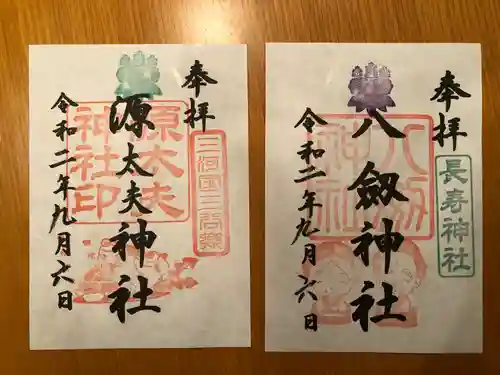 奉拝
源太夫神社
令和二年九月六日
源太夫神社印
奉拝
八劔神社
令和二年九月六日
八剱神社
長寿神社